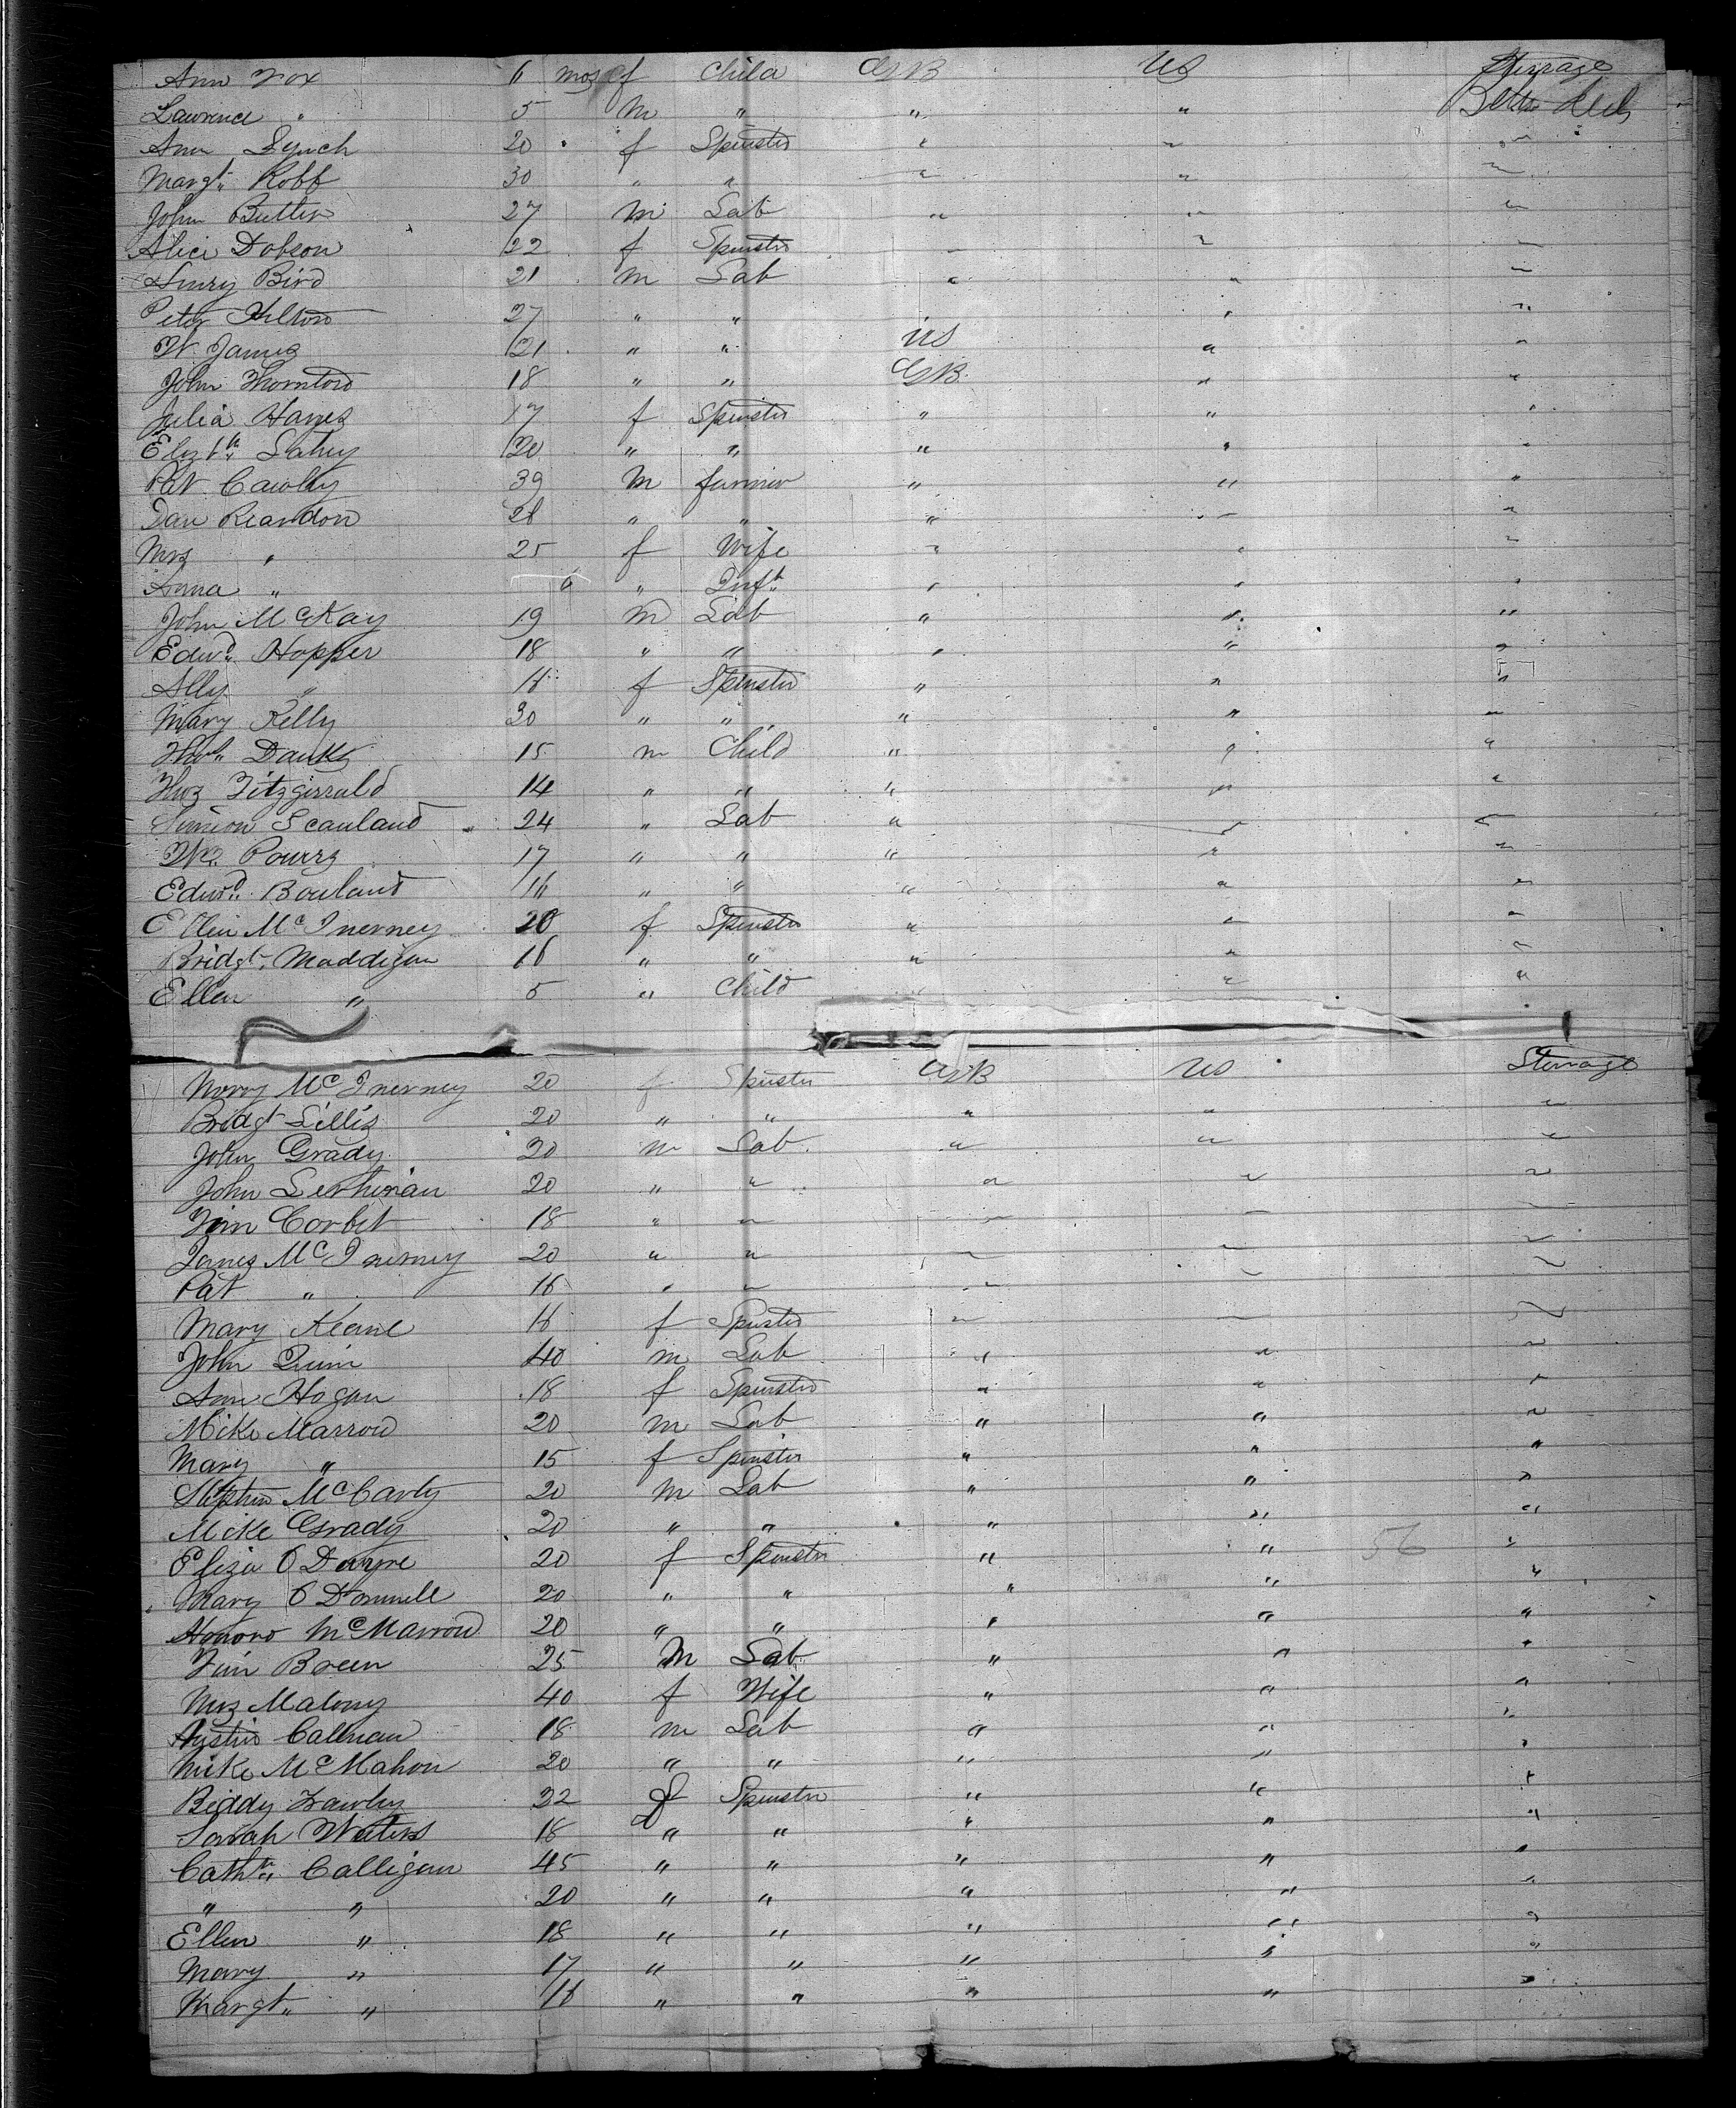 Ann Fox 6 mos f Child GB US Sterrage
Lawrence " 5 m " " " Betw Deck
Ann Lynch 20 f Spinster " " "
Margt. Robb 30 " " " " "
John Butler 27 m Lab " " "
Alice Dobson 22 f Spinster " " "
Henry Bird 21 m Lab " " "
Peter Hilton 27 " " " "
W. James 21 " " US " "
John Thornton 18 " " GB " "
Julia Hayes 17 f Spinster " " "
Elizbth Lahey 20 " " " " "
Pat Cawley 39 m farmer " " "
Dan Reardon 28 " " " " "
Mrs " 25 f Wife " " "
Anna " " " Inft " " "
John McKay 19 m Lab " " "
Edwd. Hopper 18 " " " " "
Ally " 18 f Spinster " " "
Mary Kelly 30 " " " " "
Thos. Danks 15 m Child " " "
Thos Fitzgerrald 14 " " " " "
Simeon Scanland 24 " Lab " " "
Powers 17 " " " " "
Edwd. Bouland 16 " " " " "
Ellen McInerney 20 f Spinster " " "
Bridgt. Maddigan 16 " " " " "
Ellen " 5 " Child " " "
Norry McInerney 20 f Spinster GB US Sterrage
Bridgt Lillis 20 " " " " "
John Grady 20 m Lab " " "
John 20 " " " " "
Tim Corbet 18 " " " " "
James McInerney 20 " " " " "
Pat " 16 " " " " "
Mary Keane 16 f Spinster " " "
John Quin 40 m Lab " " "
Ann Hogan 18 f Spinster " " "
Mike Marrow 20 m Lab " " "
Mary " 15 f Spinster " " "
Stephen McCarty 20 m Lab " " "
Mike Grady 20 " " " " "
Eliza O 20 f Spinster " " 56 "
Mary O Donnell 20 " " " " "
Honoro McMarrow 20 " " " " "
Tim Breen 25 m Lab " " "
Mrs Malony 40 f Wife " " "
Austin Callinan 18 m Lab " " "
Mike McMahon 20 " " " " "
Biddy 22 f Spinster " " "
Sarah Waters 18 " " " " "
Cathn. Calligan 45 " " " " "
" " 20 " " " " "
Ellen " 18 " " " " "
Mary " 17 " " " " "
Margt. " 16 " " " " "